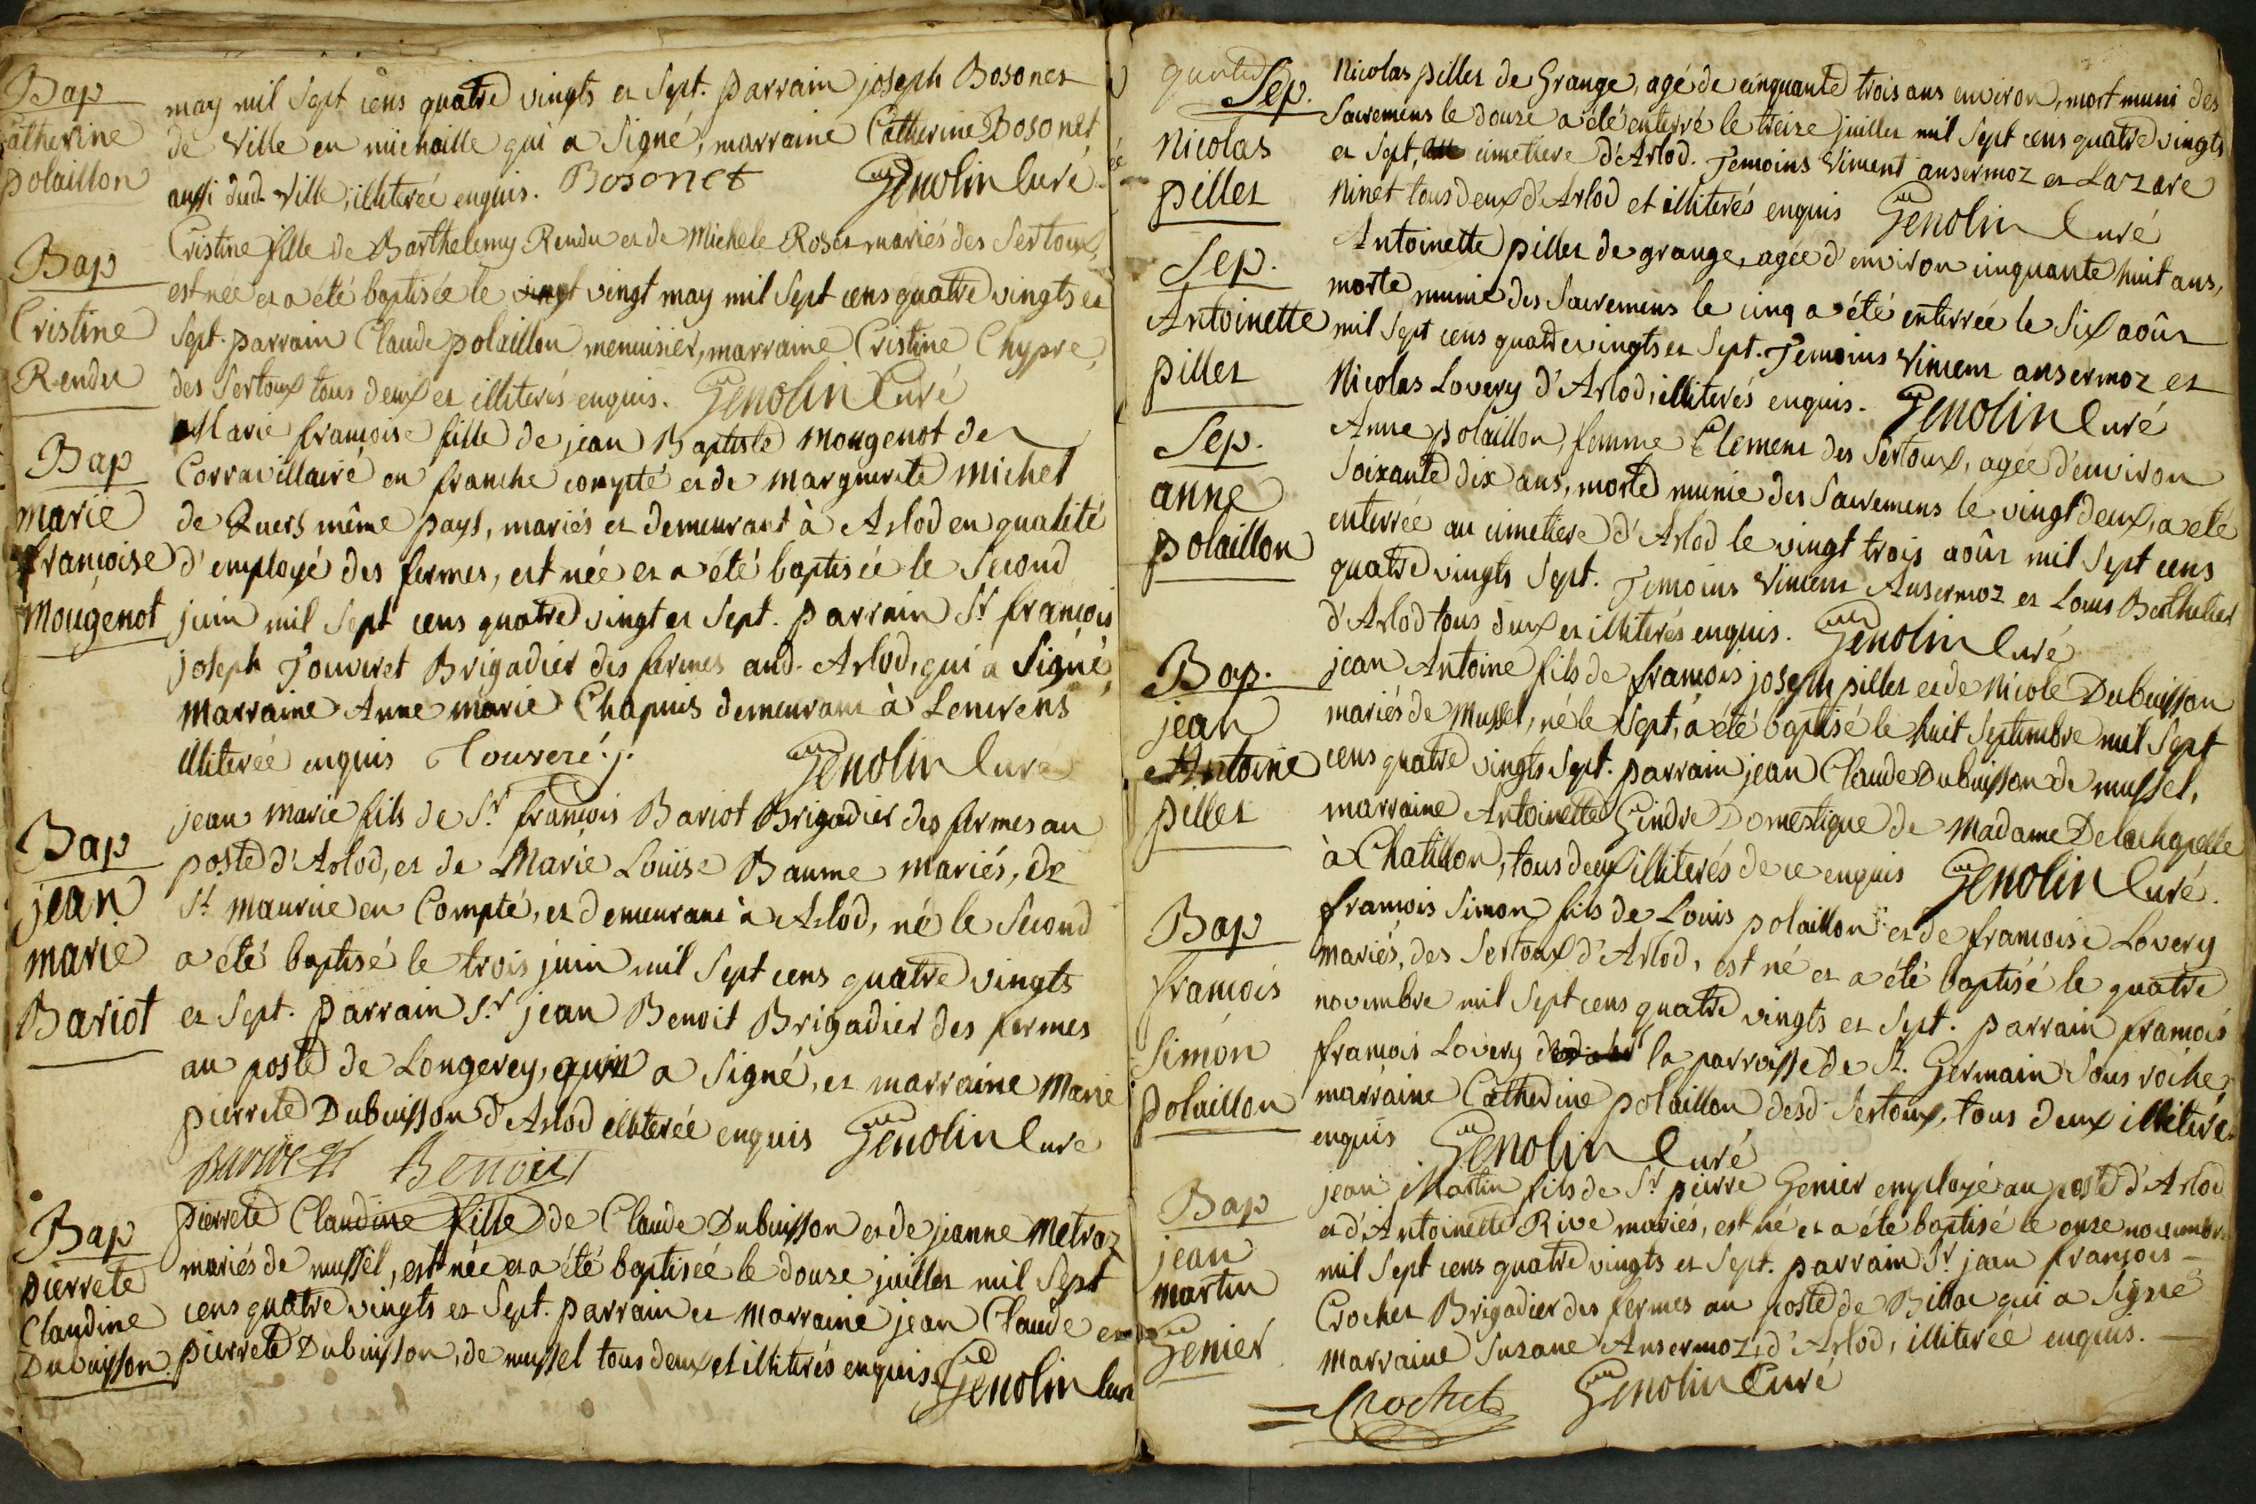 Bap
Catherine
polaillon
may mil Sept cens quatre vingts et Sept. parrain joseph Bosonet
de Ville en michaille qui a Signé, marraine Catherine Bosonet,
aussi dud. Ville, illiterée enquis. Bosonet Genolin Curé
Bap
Cristine
Rendu
Cristine fille de Barthelemy Rendu et de Michele Roset mariés des Sertoux,
est née et a été baptisée le vingt may mil Sept cens quatre vingts et
Sept. parrain Claude polaillon menuisier, marraine Cristine Chypre,
des Sertoux tous deux et illiterés enquis. Genolin Curé
Bap
marie
françoise
Mougenot
Marie françoise fille de jean Baptiste Mougenot de
Corravillairé en franche compté et de marguerite Michel
de Quers même pays, mariés et demeurant à Arlod en qualité
d'employé des fermes, est née et a été baptisée le Second
juin mil Sept cens quatre vingt et Sept. parrain Sr. françois
joseph Touveret Brigadier des fermes aud. Arlod, qui a Signé,
marraine Anne marie Chapuis demeurant à
illiterée enquis Genolin Curé
Bap
jean
marie
Bariot
jean marie fils de Sr. françois Bariot Brigadier des fermes au
poste d'Arlod, et de Marie Louise Baume mariés, de
St. maurice en Compté, et demeurant à Arlod, né le Second
a été baptisé le trois juin mil Sept cens quatre vingts
et Sept. parrain Sr. jean Benoit Brigadier des fermes
au poste de Longerey, qui a Signé, et marraine Marie
pierrete Dubuisson d'Arlod illiterée enquis Genolin Curé
Benoist
Bap
pierrete
Claudine
Dubuisson
pierrete Claudine fille de Claude Dubuisson et de jeanne Metraz
mariés de mussel, est née et a été baptisée le douze juillet mil Sept
cens quatre vingts et Sept. parrain et marraine jean Claude et
pierrete Dubuisson, de mussel tous deux et illiterés enquis Genolin Curé
Sep.
Nicolas
pillet
Nicolas pillet de Grange, agé de cinquante trois ans environ, mort muni des
Sacremens le douze a été enterré le treize juillet mil Sept cens quatre vingts
et Sept, cimetiere d'Arlod. Temoins Vincent ansermoz et Lazare
Ninet tous deux d'Arlod et illiterés enquis Genolin Curé
Sep.
Antoinette
pillet
Antoinette pillet de grange, agée d'environ cinquante huit ans,
morte munie des Sacremens le cinq a été enterrée le Six aoûst
mil Sept cens quatre vingts et Sept. Temoins Vincent ansermoz et
Nicolas Lovery d'Arlod, illiterés enquis. Genolin Curé
Sep.
anne
polaillon
Anne polaillon, femme Clement des Sertoux, agée d'environ
Soixante dix ans, morte munie des Sacremens le vingt deux, a été
enterrée au cimetiere d'Arlod le vingt trois aoûst mil Sept cens
quatre vingts Sept. Temoins Vincent Ansermoz et Louis Berthelier
d'Arlod tous deux et illiterés enquis. Genolin Curé
Bap.
jean
Antoine
pillet
jean Antoine fils de françois joseph pillet et de Nicole Dubuisson
mariés de Mussel, né le Sept, a été baptisé le huit Septembre mil Sept
cens quatre vingts Sept. parrain jean Claude Dubuisson de mussel,
marraine Antoinette Gindre Domestique de Madame Delachapelle
à Chatillon, tous deux illiterés de ce enquis Genolin Curé.
Bap
françois
Simon
polaillon
françois Simon fils de Louis polaillon et de francoise Lovery
mariés, des Sertoux d'Arlod, est né et a été baptisé le quatre
novembre mil Sept cens quatre vingts et Sept. parrain françois
françois Lovery la parroisse de St. Germain Sous roche,
marraine Catherine polaillon desd. Sertoux, tous deux illiterés
enquis Genolin Curé
Bap
jean
martin
Genier
jean Martin fils de Sr. pierre Genier employé au poste d'Arlod
et d'Antoinette Rive mariés, est né et a été baptisé le onze novembre
mil Sept cens quatre vingts et Sept. parrain Sr. jean françois
Crochet Brigadier des fermes au poste de qui a Signé
marraine Suzane Ansermoz, d'Arlod, illiterée enquis.
Crochet Genolin Curé